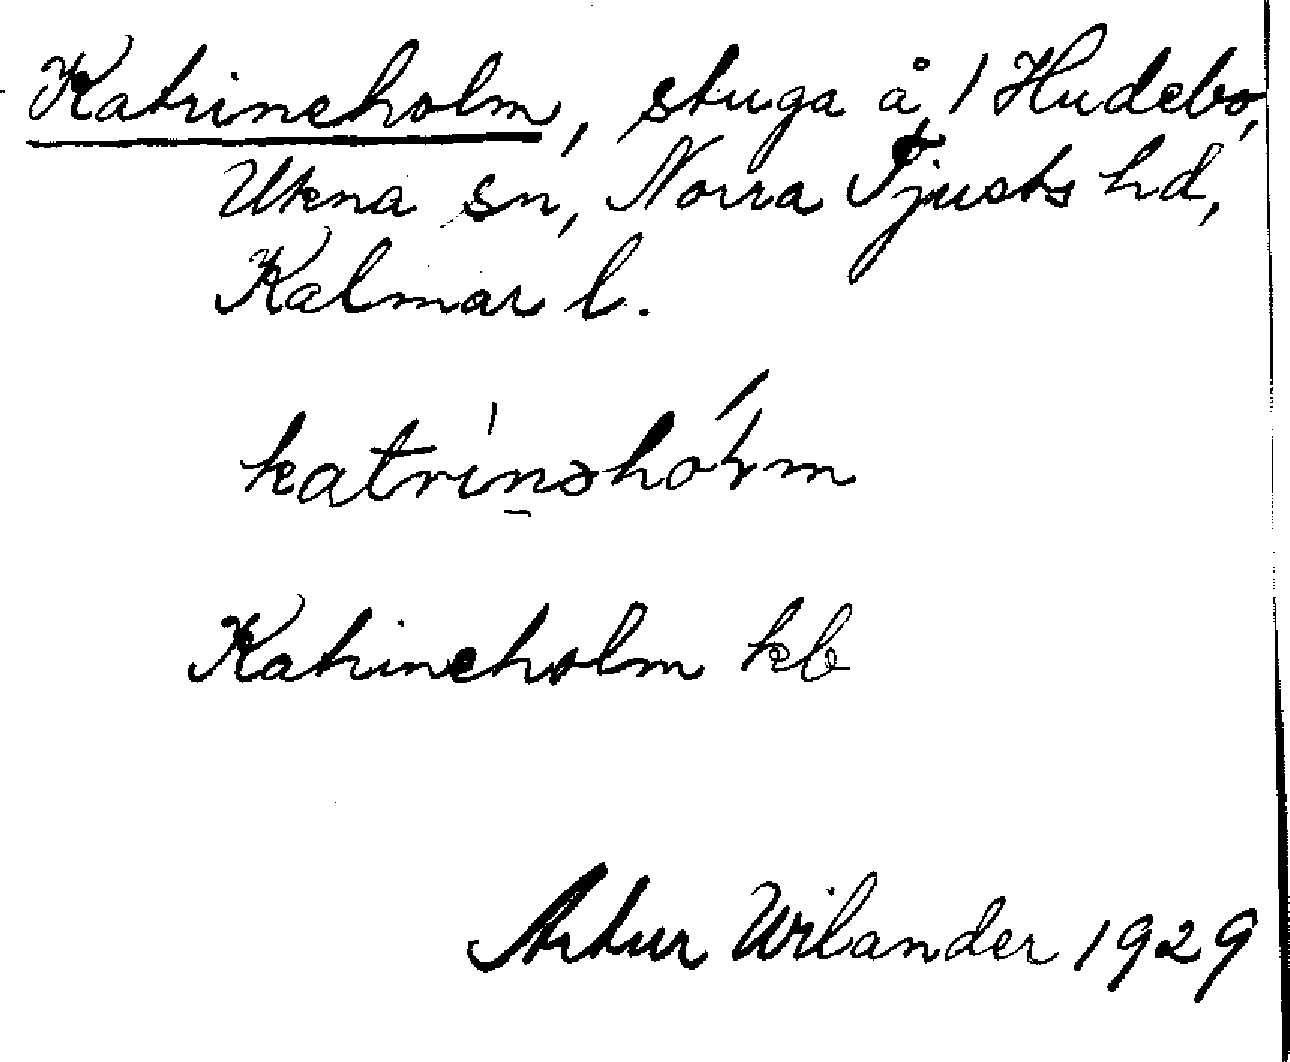 Katrineholm, stuga å 1 Hudebo,
Ukna sn, Norra Tjusts hd,
Kalmar l.
Katrineholm kb
Artur Wilander 1929